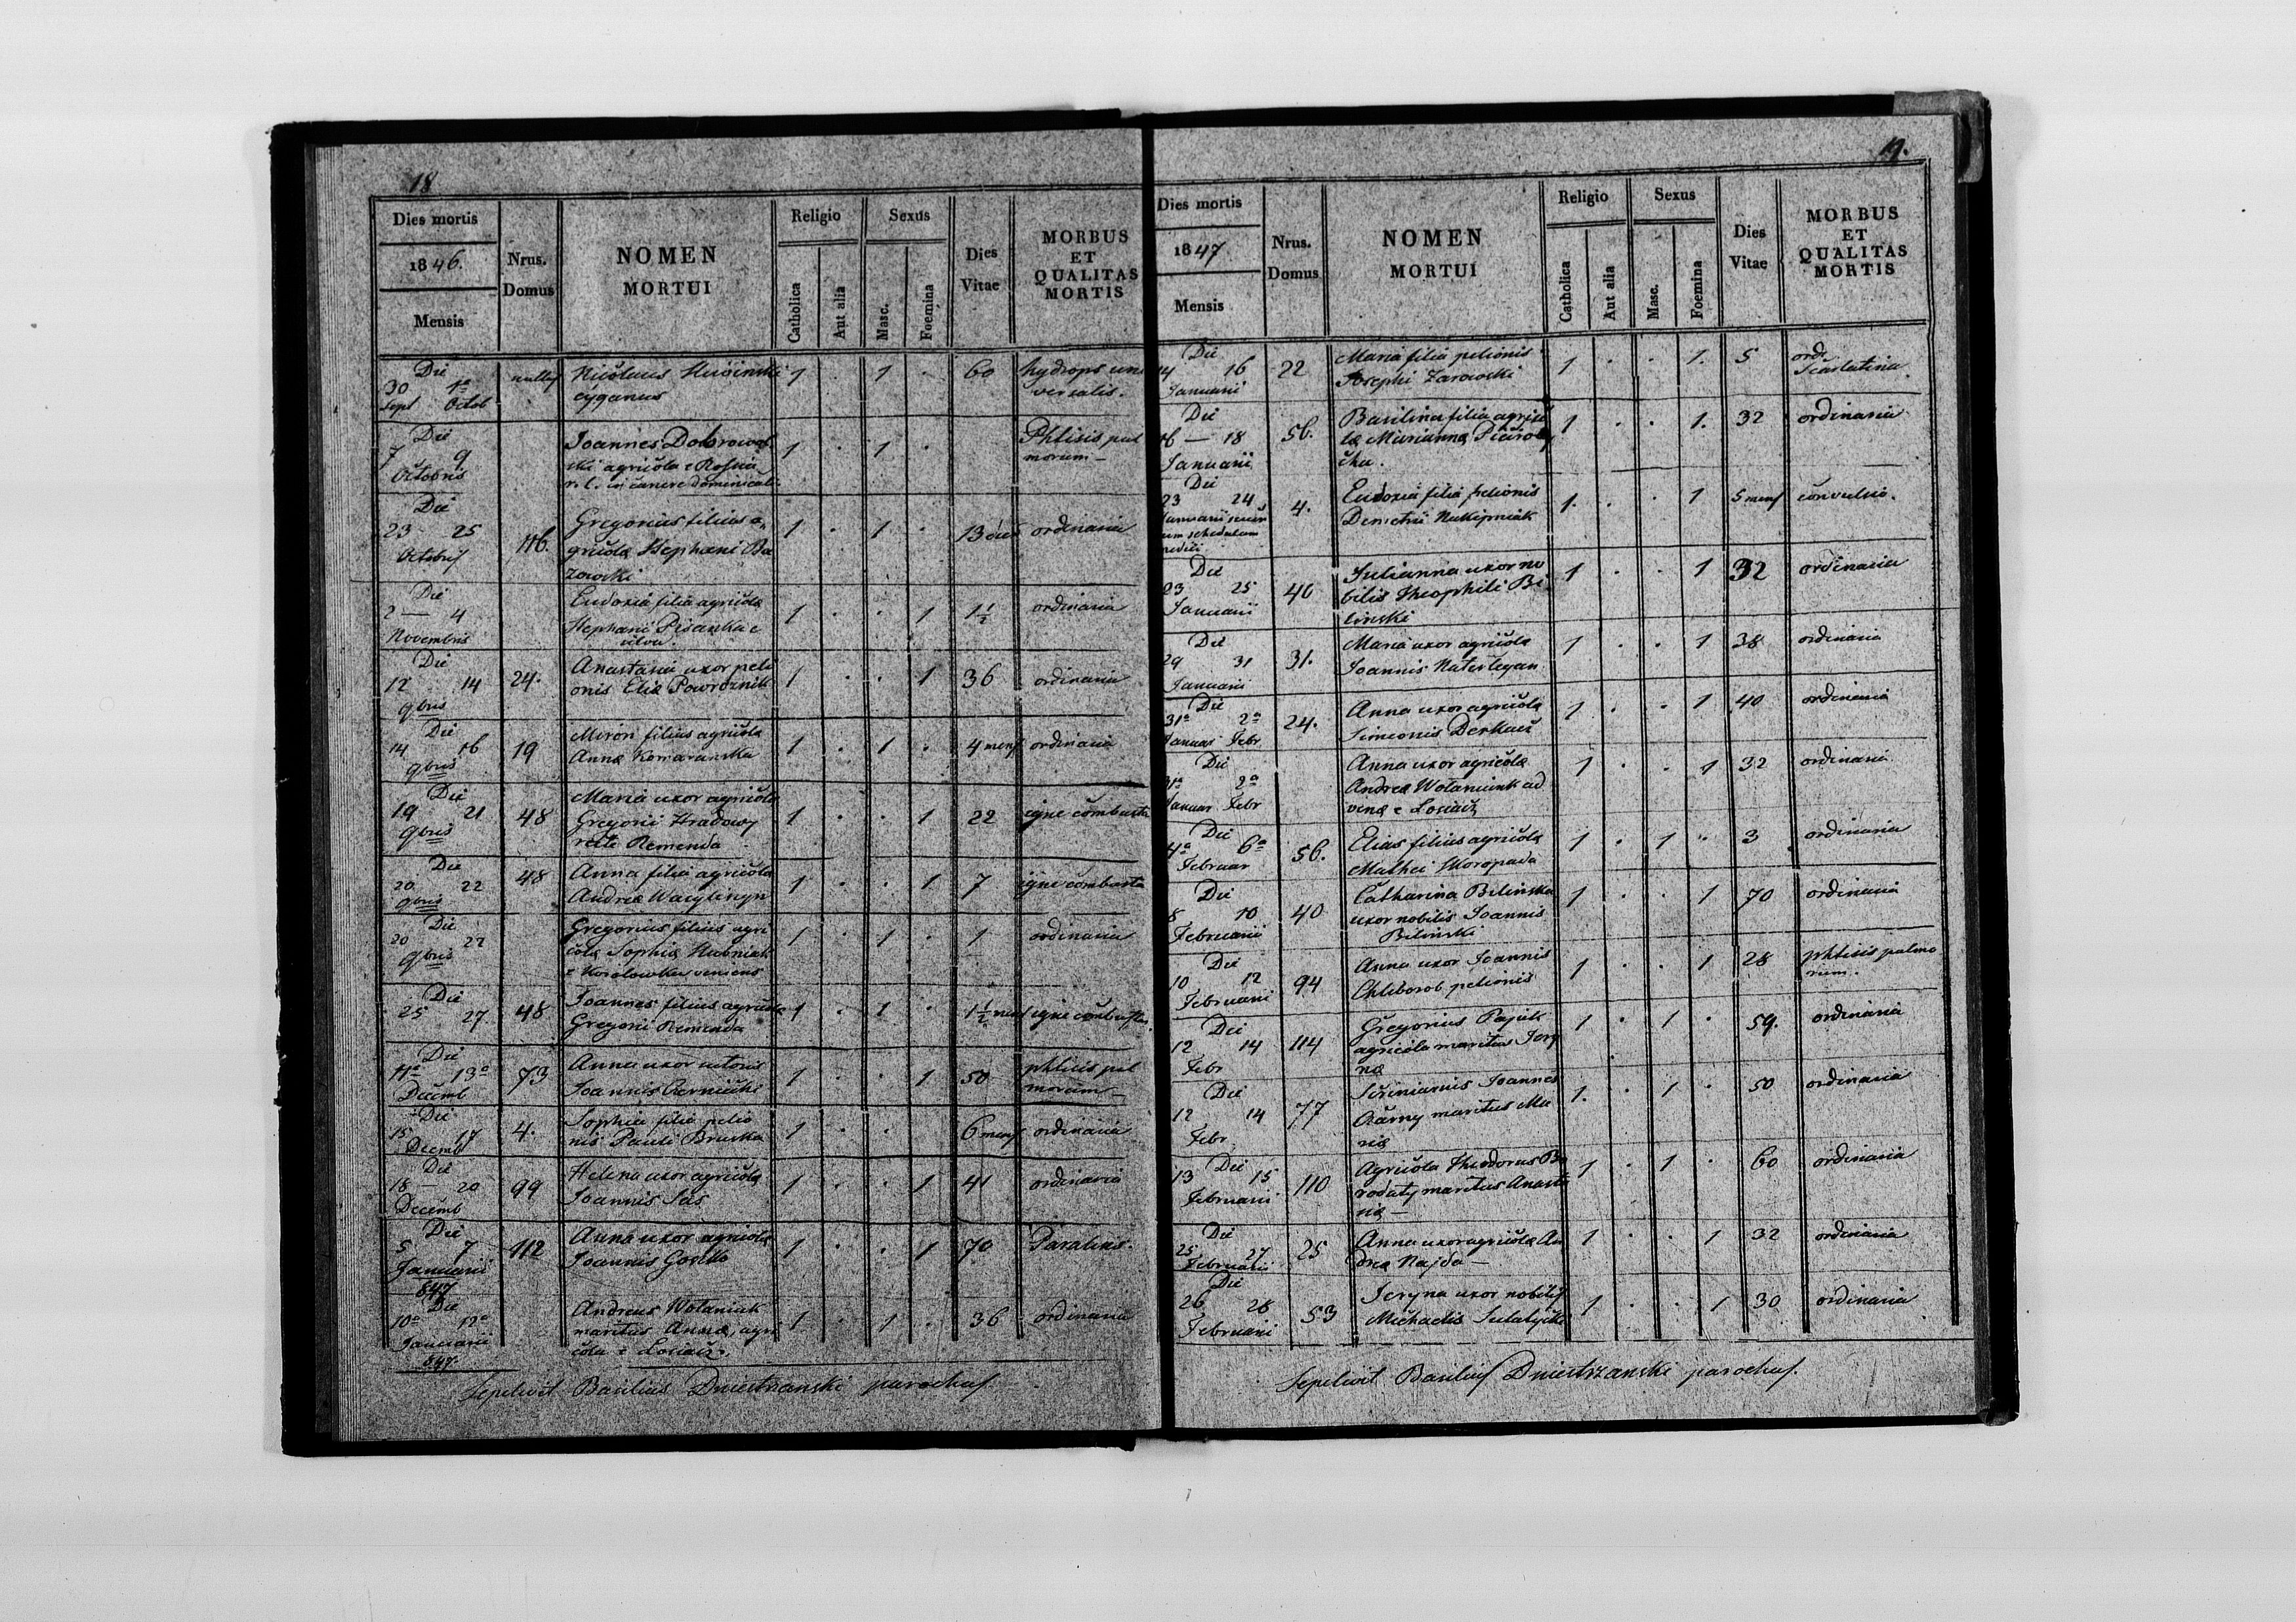 18
Dies mortis
1846.
Mensis
Nrus.
Domus
NOMEN
MORTUI
Religio
Catholica
Aut alia
Sexus
Masc.
Foemina
Dies
Vitae
MORBUS
ET
QUALITAS
MORTIS
Die
30 1a
Sept Octob
nullus
Nicolaus
cyganus
1 . 1 . 60
hydrops uni
versalis.
Die
7 9
Octobris
Joannes Dobrowol
ski agricola e
in carcere dominicali
1 . 1 .
Phtisis pul
monum
Die
23 25
Octobris
116.
Gregorius filius a
gricolæ Stephani Ba
zowski
1 . 1 . 13 dies
ordinaria
Die
2 — 4
Novembris
Eudoxia filia agricolæ
Stephani Pisanka e
1 . . 1 1½
ordinaria
Die
12 14
9bris
24.
Anastasia uxor peli
onis Eliæ Powroznik
1 . . 1 36
ordinaria
Die
14 16
9bris
19
Miron filius agricolæ
Annæ Komaranska
1 . 1 . 4 mens
ordinaria
Die
19 21
9bris
48
Maria uxor agricolæ
Gregorii Hradowy
recte Remenda
1 . . 1 22
igne combusta
Die
20 22
9bris
48
Anna filia agricolæ
Andreæ Wasylyszyn
1 . . 1 7
igne combusta
Die
20 22
9bris
Gregorius filius agri
colæ Sophiæ Hubniak
e veniens
1 . 1 . 1
ordinaria
Die
25 27
48
Joannes filius agricolæ
Gregorii Remenda
1 . 1 . 1½ mens
igne combustus
Die
11a 13a
Decemb
73
Anna uxor sutoris
Joannis Czernicki
1 . . 1 50
phtisis pul
monum
Die
15 17
Decemb
4.
Sophia filia pelio
nis Pauli Bruska
1 . . 6 mens
ordinaria
Die
18 — 20
Decemb
99
Helena uxor agricolæ
Joannis Sas
1 . . 1 41
ordinaria
Die
5 7
Januarii
847
112
Anna uxor agricolæ
Joannis Gosko
1 . . 1 70
Paralisis.
Die
10a 12a
Januarii
847.
Andreas Wolaniuk
maritus Annæ, agri
cola e Losiacz.
1 . 1 . 36
ordinaria
Sepelivit Basilius Dniestrzanski parochus
19.
Dies mortis
1847.
Mensis
Nrus.
Domus
NOMEN
MORTUI
Religio
Catholica
Aut alia
Sexus
Masc.
Foemina
Dies
Vitae
MORBUS
ET
QUALITAS
MORTIS
Die
14 16
Januarii
22
Maria filia pelionis
Josephi Zarowski
1 . . 1. 5
ord.
Scarlatina.
Die
16 — 18
Januarii
56.
Basilina filia agrico
læ Mariannæ
1 . . 1. 32
ordinaria
Die
23 24
Januarii
schedulam
4.
Eudoxia filia pelionis
Demetrii Nakipniak
1. . . 1 5 mens
convulsio.
Die
23 25
Januarii
40
Julianna uxor no
bilis Theophili Bi
linski
1 . . 1 32
ordinaria
Die
29 31
Januarii
31.
Maria uxor agricolæ
Joannis
1 . . 1 38
ordinaria
Die
31a 2a
Januar Febr
24.
Anna uxor agricolæ
Simeonis Derkacz
1 . . 1 40
ordinaria
Die
31a 2a
Januar Febr
Anna uxor agricolæ
Andreæ Wolaniuk ad
venæ e Losiacz
1 . . 1 32
ordinaria
Die
4a 6a
Februar
56.
Elias filius agricolæ
Mathei Skoropada
1 . 1 . 3
ordinaria
Die
8 10
Februarii
40
Catharina Bilinska
uxor nobilis Joannis
Bilinski
1 . . 1 70
ordinaria
Die
10 12
Februarii
94
Anna uxor Joannis
Chliborob pelionis
1 . . 1 28
phtisis pulmo
num.
Die
12 14
Febr
114
Gregorius Pajuk
agricola maritus Jery
næ
1 . 1 . 59.
ordinaria
Die
12 14
Febr.
77
Joannes
Czarny maritus Ma
riæ
1. . 1 . 50
ordinaria
Die
13 15
Februarii
110
Agricola Theodorus Bo
rodaty maritus Anasta
siæ —
1 . 1 . 60
ordinaria
Die
25 27
Februarii
25
Anna uxor agricolæ An
dreæ Najda —
1 . . 1 32
ordinaria
Die
26 28
Februarii
53
Jeryna uxor nobilis
Michaelis Sulatycki
1 . . 1 30
ordinaria
Sepelivit Basilius Dniestrzanski parochus.